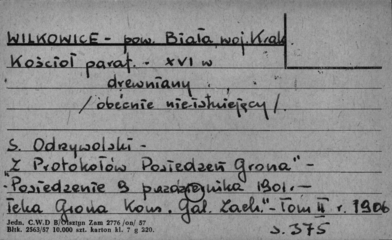 WILKOWICE - pow. Biała, woj. Krak.
Kościół paraf. - XVI w
drewniany.
/obecnie nieistniejący/.
S. Odrzywolski -
"Z Protokołów Posiedzeń Grona" -
"Posiedzenie 9 października 1901. -
Teka Grona Kons. Gal. Zach." - Tom II r. 1906
s. 375
Jedn. C.W.D B/Olsztyn Zam 2776/on/57
Bltk. 2563/57 10.000 szt. karton kl. 7 g 220.